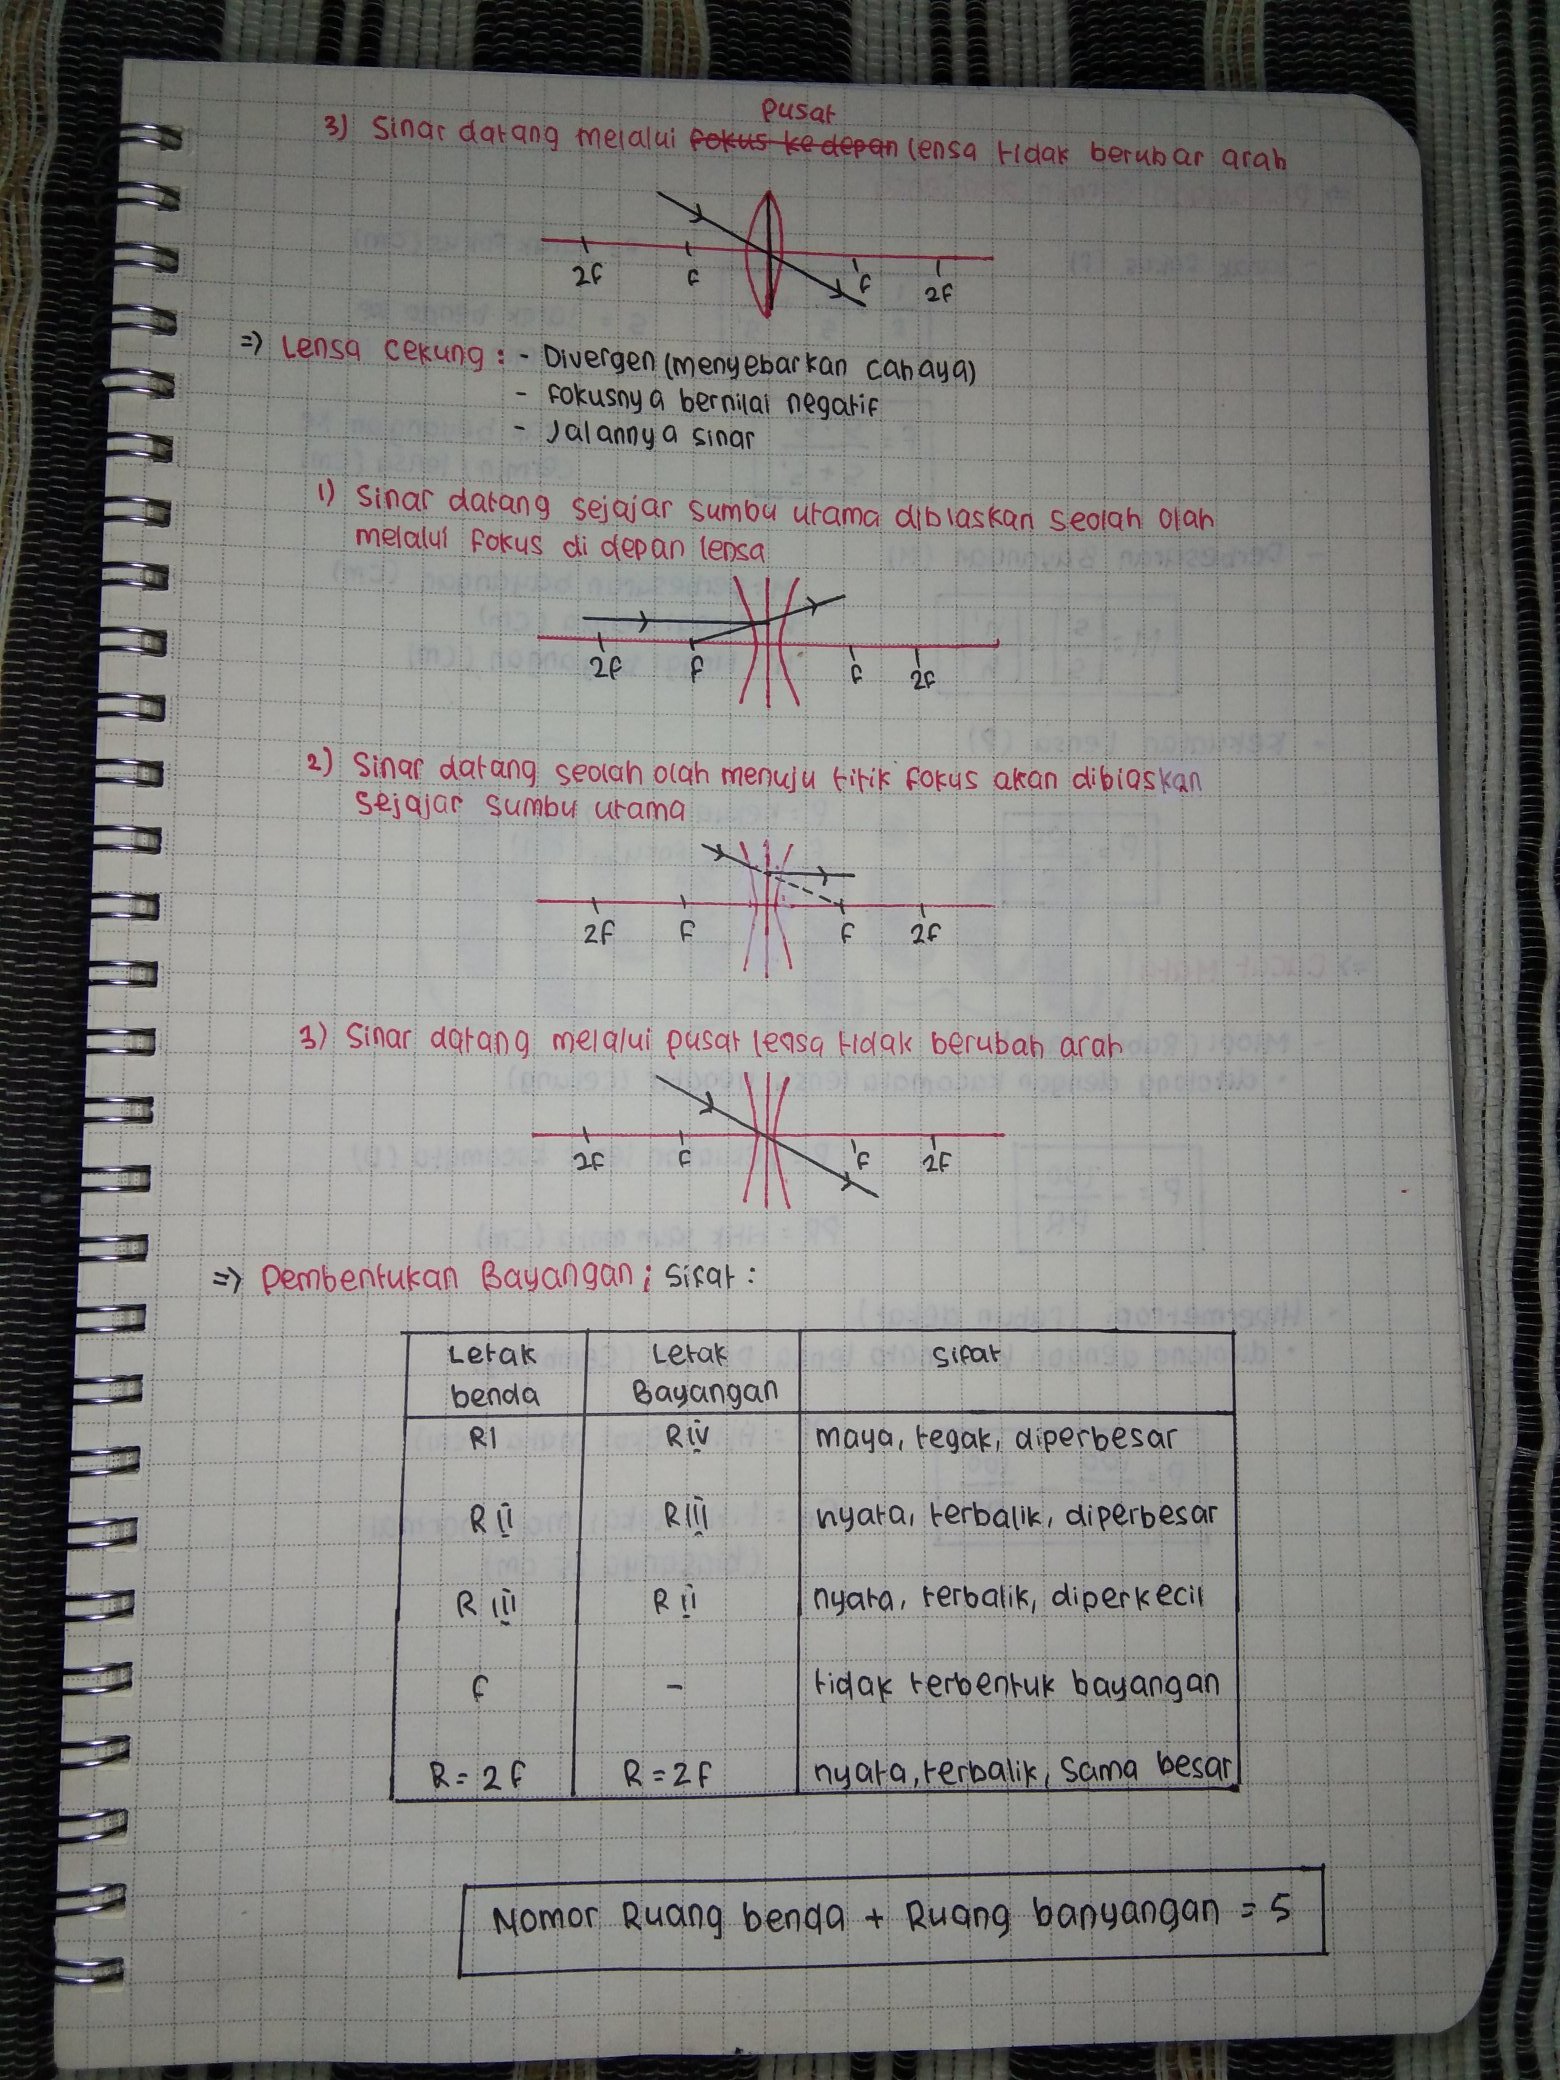 Pusat
3) Sinar datang melalui fokus ke depan lensa tidak berubar arah
2f f f 2f
=> Lensa cekung : - Divergen (menyebarkan cahaya)
- fokusnya bernilai negatif
- Jalannya sinar
1) Sinar datang sejajar sumbu utama dibiaskan seolah olah
melalui fokus di depan lensa
2f f f 2f
2) Sinar datang seolah olah menuju titik fokus akan dibiaskan
sejajar sumbu utama
2f f f 2f
3) Sinar datang melalui pusat lensa tidak berubah arah
2f f f 2f
=> Pembentukan Bayangan ; Sifat :
Letak benda Letak Bayangan Sifat
RI RIV maya, tegak, diperbesar
RII RIII nyata, terbalik, diperbesar
RIII RII nyata, terbalik, diperkecil
f - tidak terbentuk bayangan
R = 2f R = 2f nyata, terbalik, sama besar
Nomor Ruang benda + Ruang banyangan = 5